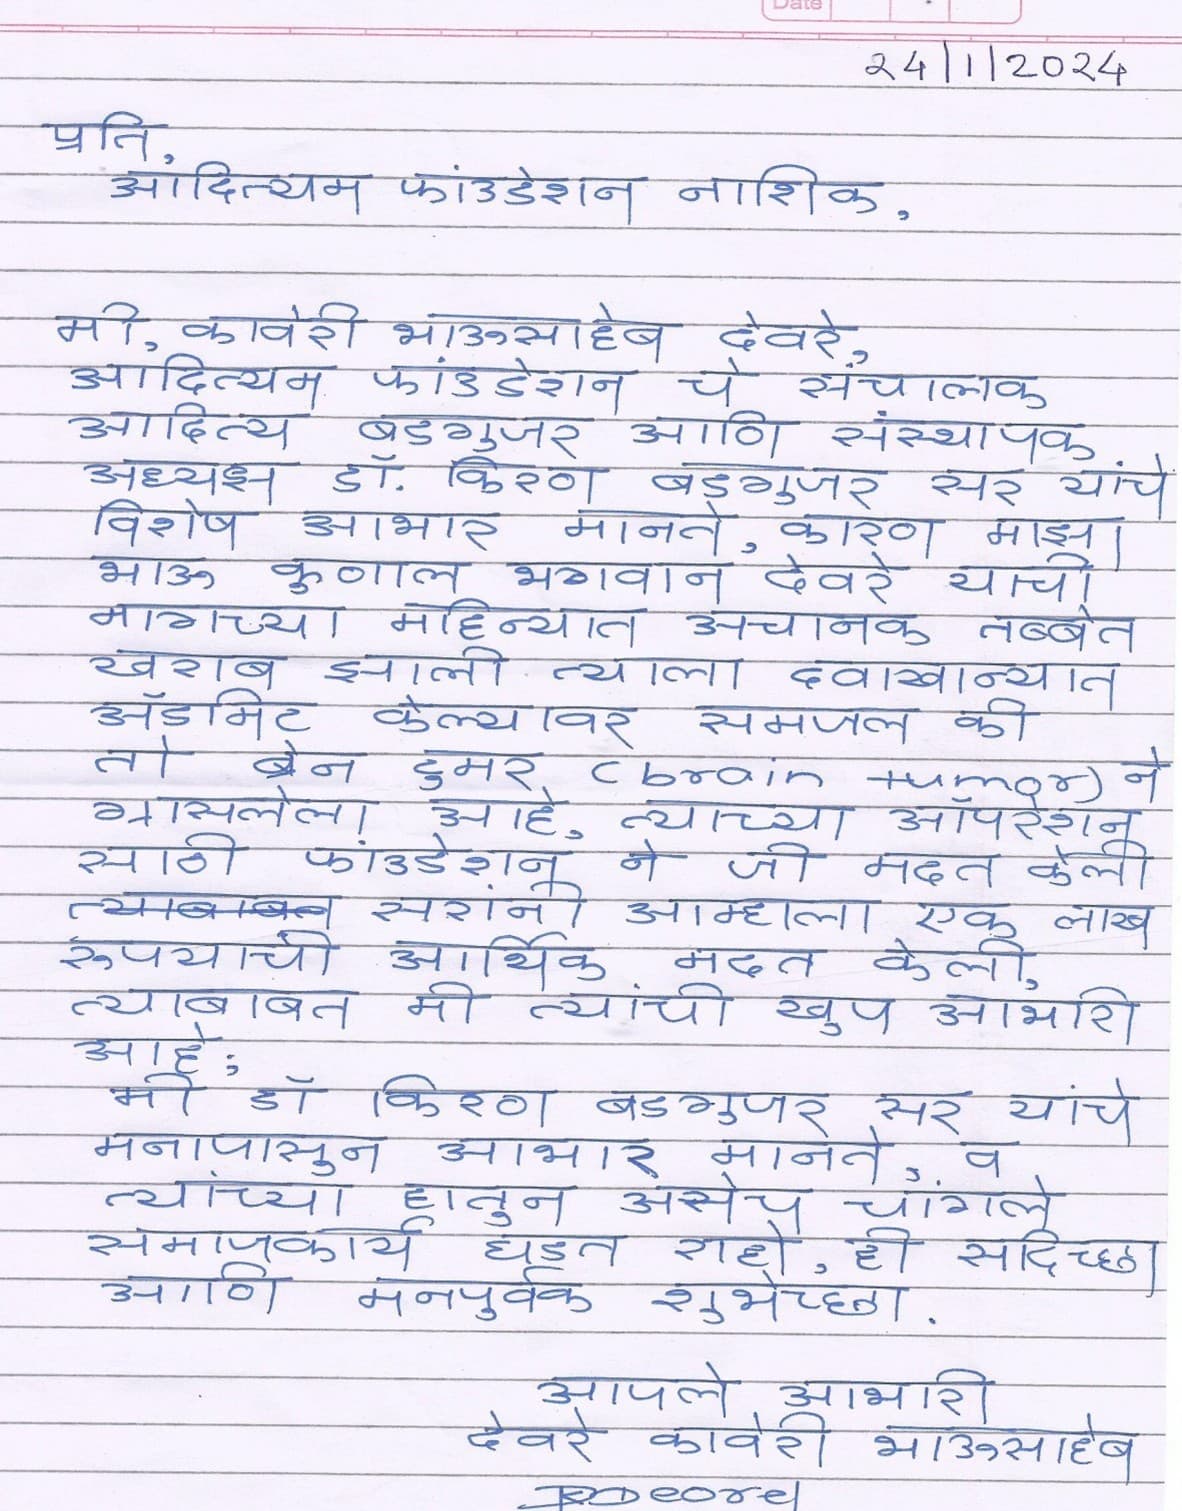 Date
24/1/2024
प्रति,
आदित्यम फांउडेशन नाशिक,
मी, कावेरी भाऊसाहेब देवरे,
आदित्यम फांउडेशन चे संचालक
आदित्य बडगुजर आणि संस्थापक
अध्यक्ष डॉ. किरण बडगुजर सर यांचे
विशेष आभार मानते, कारण माझा
भाऊ कुणाल भगवान देवरे याची
मागच्या महिन्यात अचानक तब्बेत
खराब झाली त्याला दवाखान्यात
ॲडमिट केल्यावर समजल की
तो ब्रेन टुमर (brain tumor) ने
ग्रासलेला आहे, त्याच्या ऑपरेशन
साठी फांउडेशन ने जी मदत केली
त्याबाबत सरांनी आम्हाला एक लाख
रूपयाची आर्थिक मदत केली,
त्याबाबत मी त्यांची खुप आभारी
आहे;
मी डॉ किरण बडगुजर सर यांचे
मनापासुन आभार मानते, व
त्यांच्या हातुन असेच चांगले
समाजकार्य घडत राहो, ही सदिच्छा
आणि मनपुर्वक शुभेच्छा.
आपले आभारी
देवरे कावेरी भाऊसाहेब
Deore